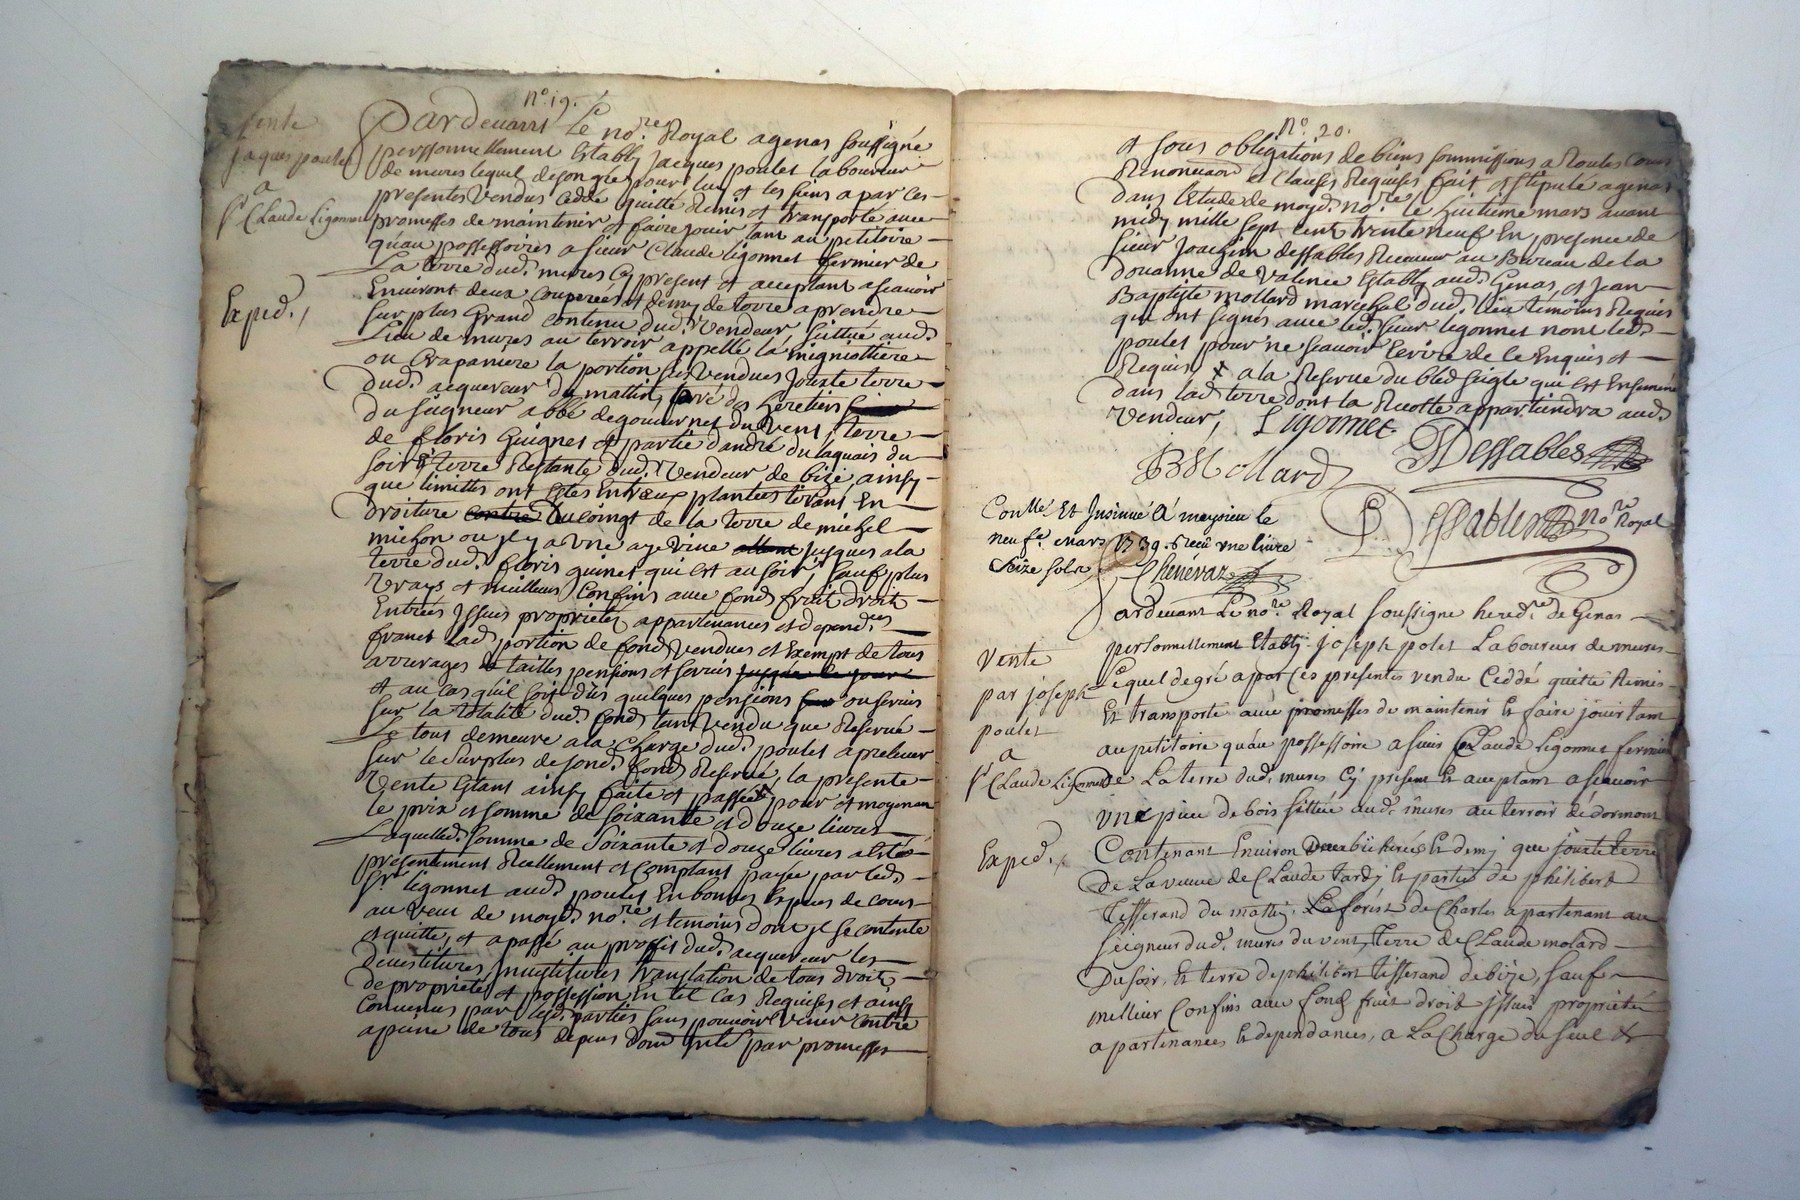 n.º 19.
Vente
jaques poulet
a
s.r Claude Ligonnet
Exped.
Pardevant Le no.re Royal a genas soussigné
personnellement Estably jacques poulet laboureur
de mures lequel de son gré pour luy et les siens a par ces
presentes vendus cedé quitté Remis et transporté avec
promesses de maintenir et faire jouir tant au petitoire
quau possessoires a sieur Claude ligonnet fermier de
La terre dud. mures Cy present et acceptant a scavoir
Environt deux couperées et demy de terre a prendre
sur plus Grand contenu dud. vendeur sittué aud.
Lieu de mures au terroir appellé la migniottiere
ou Crapaniere la portion sus vendues jouxte terre
dud. acquereur du mattin, pré des heretiers
du seigneur abbé de gouvernet du vent, terre
de floris Guignet et partie d'andré du laquais du
soir et terre Restante dud. vendeur de bize, ainsy
que limittes ont Estés Entreux plantées tirant En
droiture contre du coingt de la terre de michel
michon ou jl y a vne aye vive allant jusques a la
terre dud. floris guinet qui est au soir sauf plus
vrays et meilleurs Confins avec fond fruit droit
Entrées jssues proprietés appartenances et depend.ces
franct lad. portion de fond vendues et Exempt de tous
arrerages de tailles pensions et servis jusques ce jour
et au cas quil soit dus quelques pensions ou servis
sur la totalité dud. fond tant vendu que Reservé
Le tous demeure a la charge dud. poulet a prelever
sur le surplus de son d. fond Reservé, la presente
Vente Etant ainsy faite et passée pour et moyenan
le prix et somme de soixante et douze livres
Laquelle d. somme de soixante et douze livres a Esté
presentement Reellement et Comptant payée par led.
s.r ligonnet aud. poulet En bonnes Especes de cours
au veu de moyd. no.re et temoins dont jl se contente
et quitte, et a passé au proffit dud. acquereur les
devestitures, jnvestitures translation de tous droits
de proprietés et possession En tel cas Requises et ainsy
Convenus par lesd. parties sans pouvoir venir contre
a peine de tous depens dom. jnts par promesses
n.º 20.
et sous obligations de biens sommissions a toutes cours
Renonciaon et clauses Requises fait et stipulé a genas
dans l'Etude de moyd. no.re le huitieme mars avant
midy mille sept cent trente neuf En presence de
sieur joachim dessables Receveur au Bureau de la
doüanne de valence Estably aud. Genas, et jean
Baptiste mollard marechal dud. lieu temoins Requis
qui ont signés avec led. sieur ligonnet non led.
poulet pour ne scavoir Ecrire de ce Enquis et
Requis, a la Reserve du bled seigle qui est Ensemencé
dans lad. terre dont la Recolte appartiendra aud.
Vendeur, Ligonnet
JB Mollard Dessables
Conllé Et Jnsinué A meysieu le
neuf.e mars 1739. Reçû vne livre
seize sols
Chenévaz
Dessables no.re Royal
Pardevant Le no.re Royal soussigne hered.re de Genas
personnellement Etably joseph polet Laboureur de mures
Lequel de gré a par Ces presentes vendu Ceddé quitté Remis
Et transporté avec promesses de maintenir Et faire jouir tant
au petitoire quau possessoire a sieur Claude Ligonnet fermier
de La terre dud. mures Cy present Et acceptant a scavoir
vne piece de bois sittuée aud. mures au terroir de dormont
Contenant Environ deux bicherées Et demy que jouxte terre
de La veuve de Claude tardy Et parties de philibert
Tisserand du mattin, La forest de Charles apartenant au
seigneur dud. mures du vent, terre de Claude molard
Du soir, Et terre de philibert tisserand de bize, sauf
meilleur Confins avec fond fruit droit jssues proprietés
apartenances Et dependances, a La Charge du seul
Vente
par joseph
poulet
a
s.r Claude Ligonnet
Exped.